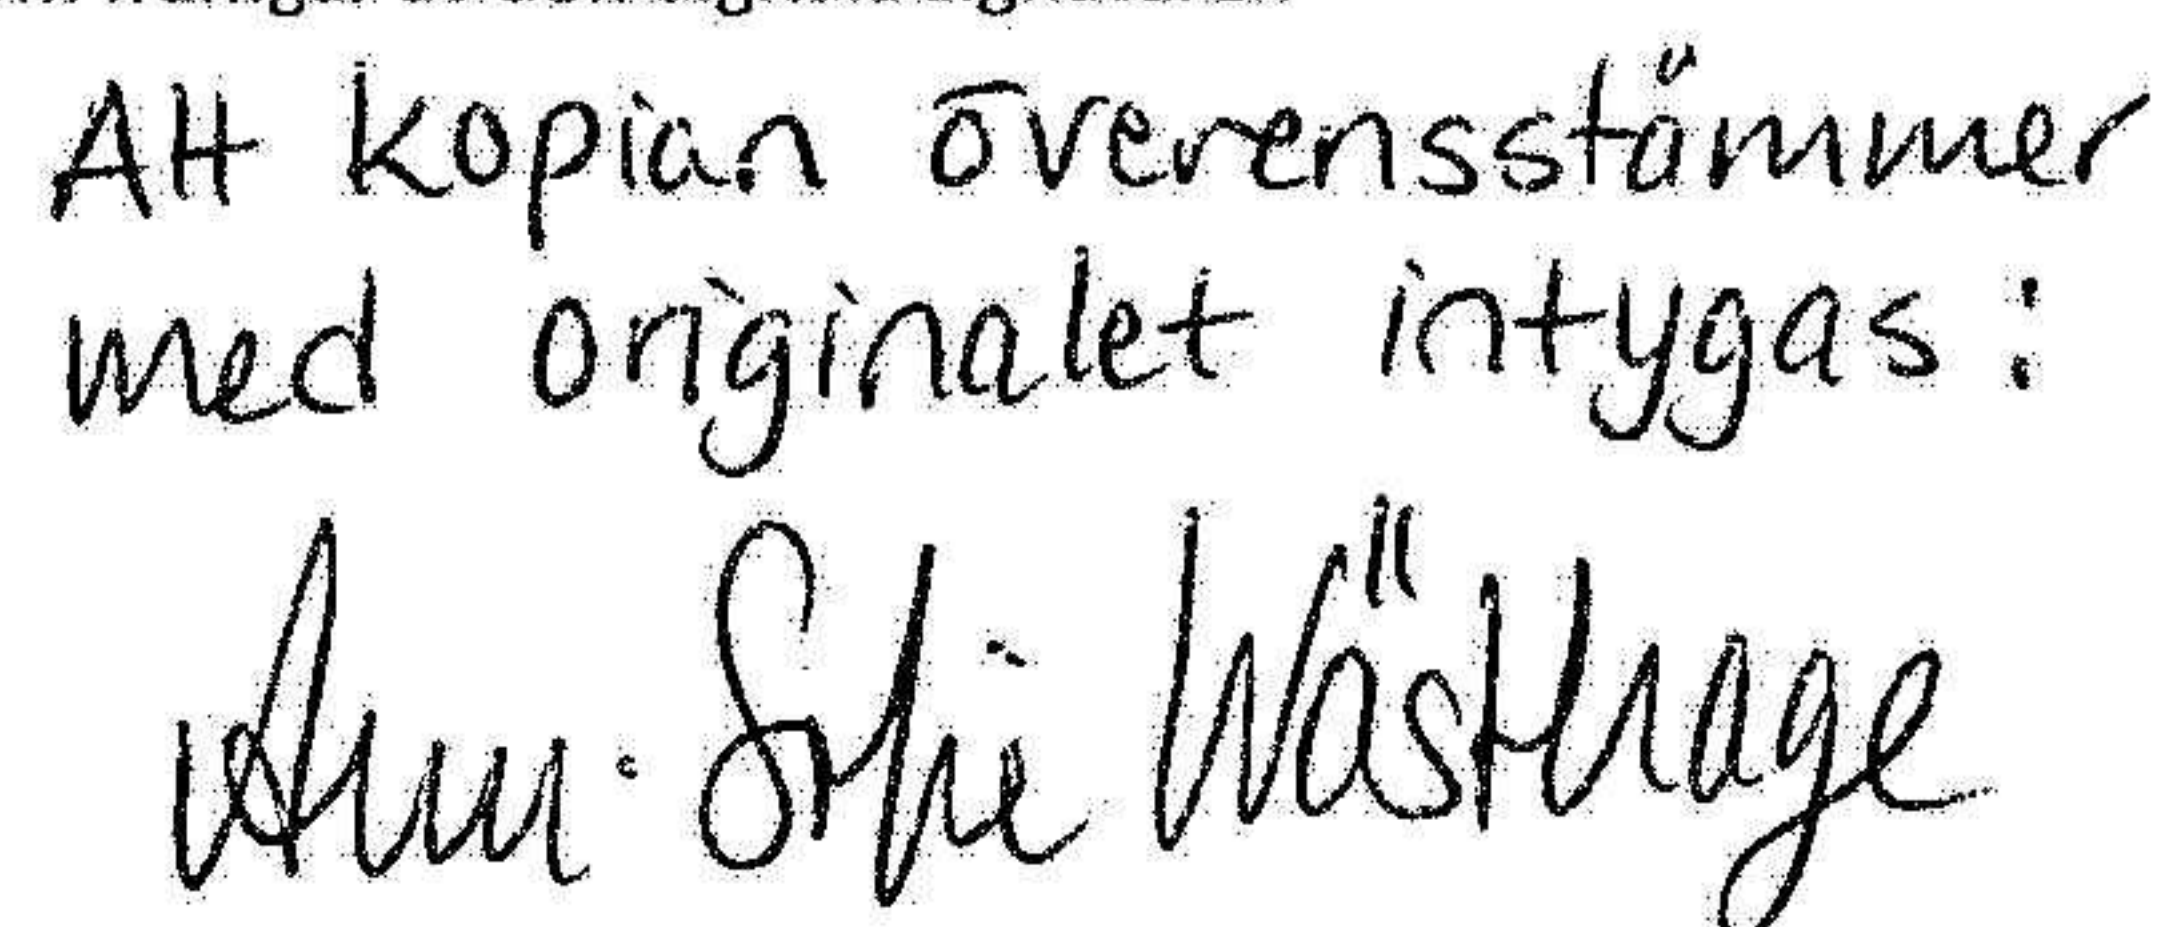 Att kopian överensstämmer
med originalet intygas:
Ann-Sofie Wästhage